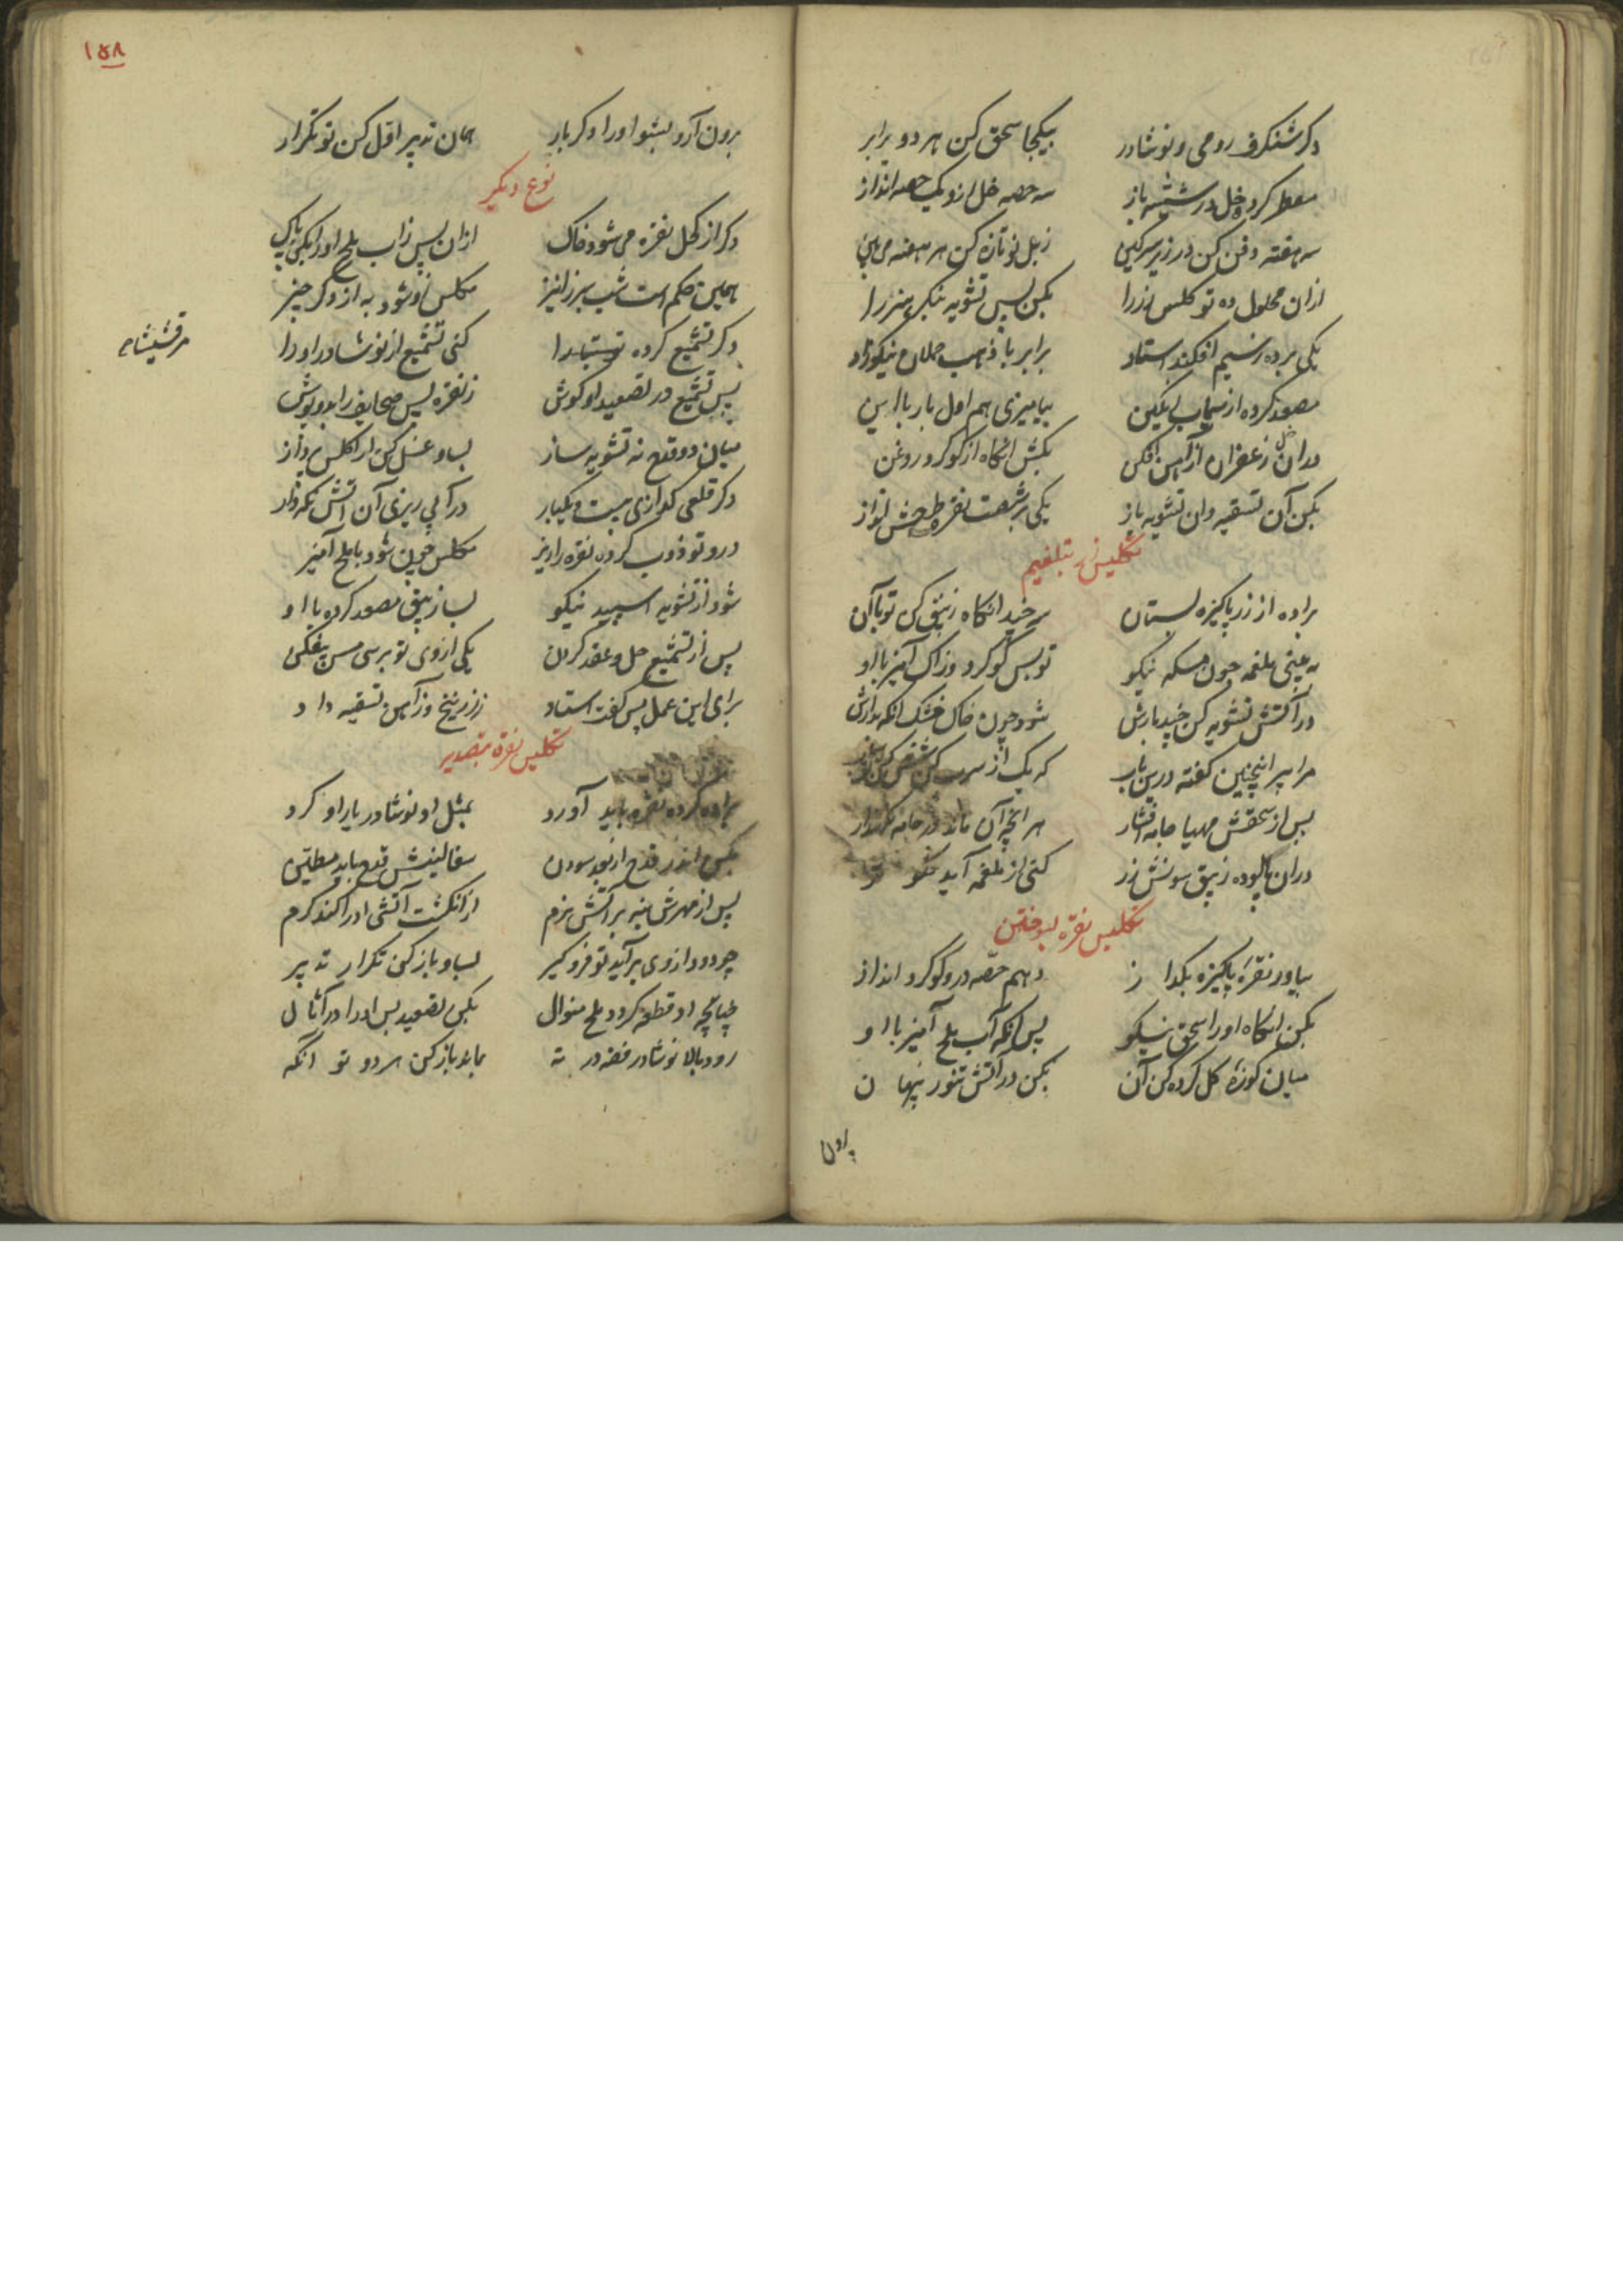 دکر شنکرف رومی و نوشادر بیکجا سحق کن هر دو برابر
مقطر کرده خل در شیشه باز سه حصه خل ازو یک حصه انداز
سه هفته دفن کن در زیر سرکین زبل نو تازه کن هر هفته می بین
ازان محلول ده تو کلس زر را بکن پس تشویه بنکر هنر را
یکی بر ده ز سیم افکند استاد برابر با ذهب حملان نیکوزاد
مصعد کرده از سیماب بکین بیامیزی هم اول بار با این
دران زعفران از آهن افکن بکش انکاه از کوکرد روغن
بکن آن تسقیه وان تشویه باز یکی بر شصت نقره طرحش انداز
تکلیس زر بتلغیم
براده از زر پاکیزه بستان سه چند انکاه زیبق کن تو با آن
به بینی ملغمه چون مسکه نیکو تو پس کوکرد و زاک آمیز با او
در آتش تشویه کن چند بارش شود چون خاک خشک انکه بدارش
مرا پیر اینچنین کفته درین باب که یک از سرب کن
پس از سحقش مهیا جامه افشار هر انچه آن ماند در جامه نکهدار
دران پالوده زیبق سونش زر کنی از ملغمه آید نکو تر
تکلیس نقره بسوختن
بیاور نقره پاکیزه بکداز دهم حصه درو کوکرد انداز
بکن انکاه اورا سحق نیکو پس انکه آب ملح آمیز با او
میان کوزه کل کرده کن آن بکن در آتش تنور پنهان
برون
۱۵۸
برون آر و بشو اورا دکر بار همان تدبیر اول کن تو تکرار
نوع دیکر
دکر از کحل نقره می شود خاک ازان پس ز آب ملح اورا بکن پاک
همین حکم است شب سبز را نیز مکلس زو شود به از دکر چیز
مرقشیشاء
دکر تشمیع کرده توتیا را کنی تشمیع از نوشادر اورا
پس تشمیع در تصعید او کوش ز نقره پس صحایف را بدو پوش
میان دو قدح نه تشویه ساز بساو غسل کن از کلس پرداز
دکر قلعی کدازی بیست و یکبار در آبی ریزی آن آتش نکه دار
درو تو ذوب کرده نقره را ریز مکلس چون شود با ملح آمیز
شود از تشویه اسپید نیکو بسا زیبق مصعد کرده با او
پس از تشمیع حل و عقد کردن یکی از وی تو بر سی مس بیفکن
برای این عمل پس کفت استاد ز زرنیخ و ز آهن تسقیه داد
تکلیس نقره بتصدیر
براده کرده نقره باید آورد بمثل او نوشادر یار او کرد
بکن اندر قدح از بعد سودن سفالینش قدح باید مطین
پس از مهرش بنه بر آتش نرم از انکشت آتشی اورا کند کرم
چو دود از وی برآید تو فرو کیر بساو باز کن تکرار تدبیر
چنانچه او قطعه کردد ملح منوال بکن تصعید پس اورا در آثال
رود بالا نوشادر فضه در ته بماند باز کن هر دو تو انکه